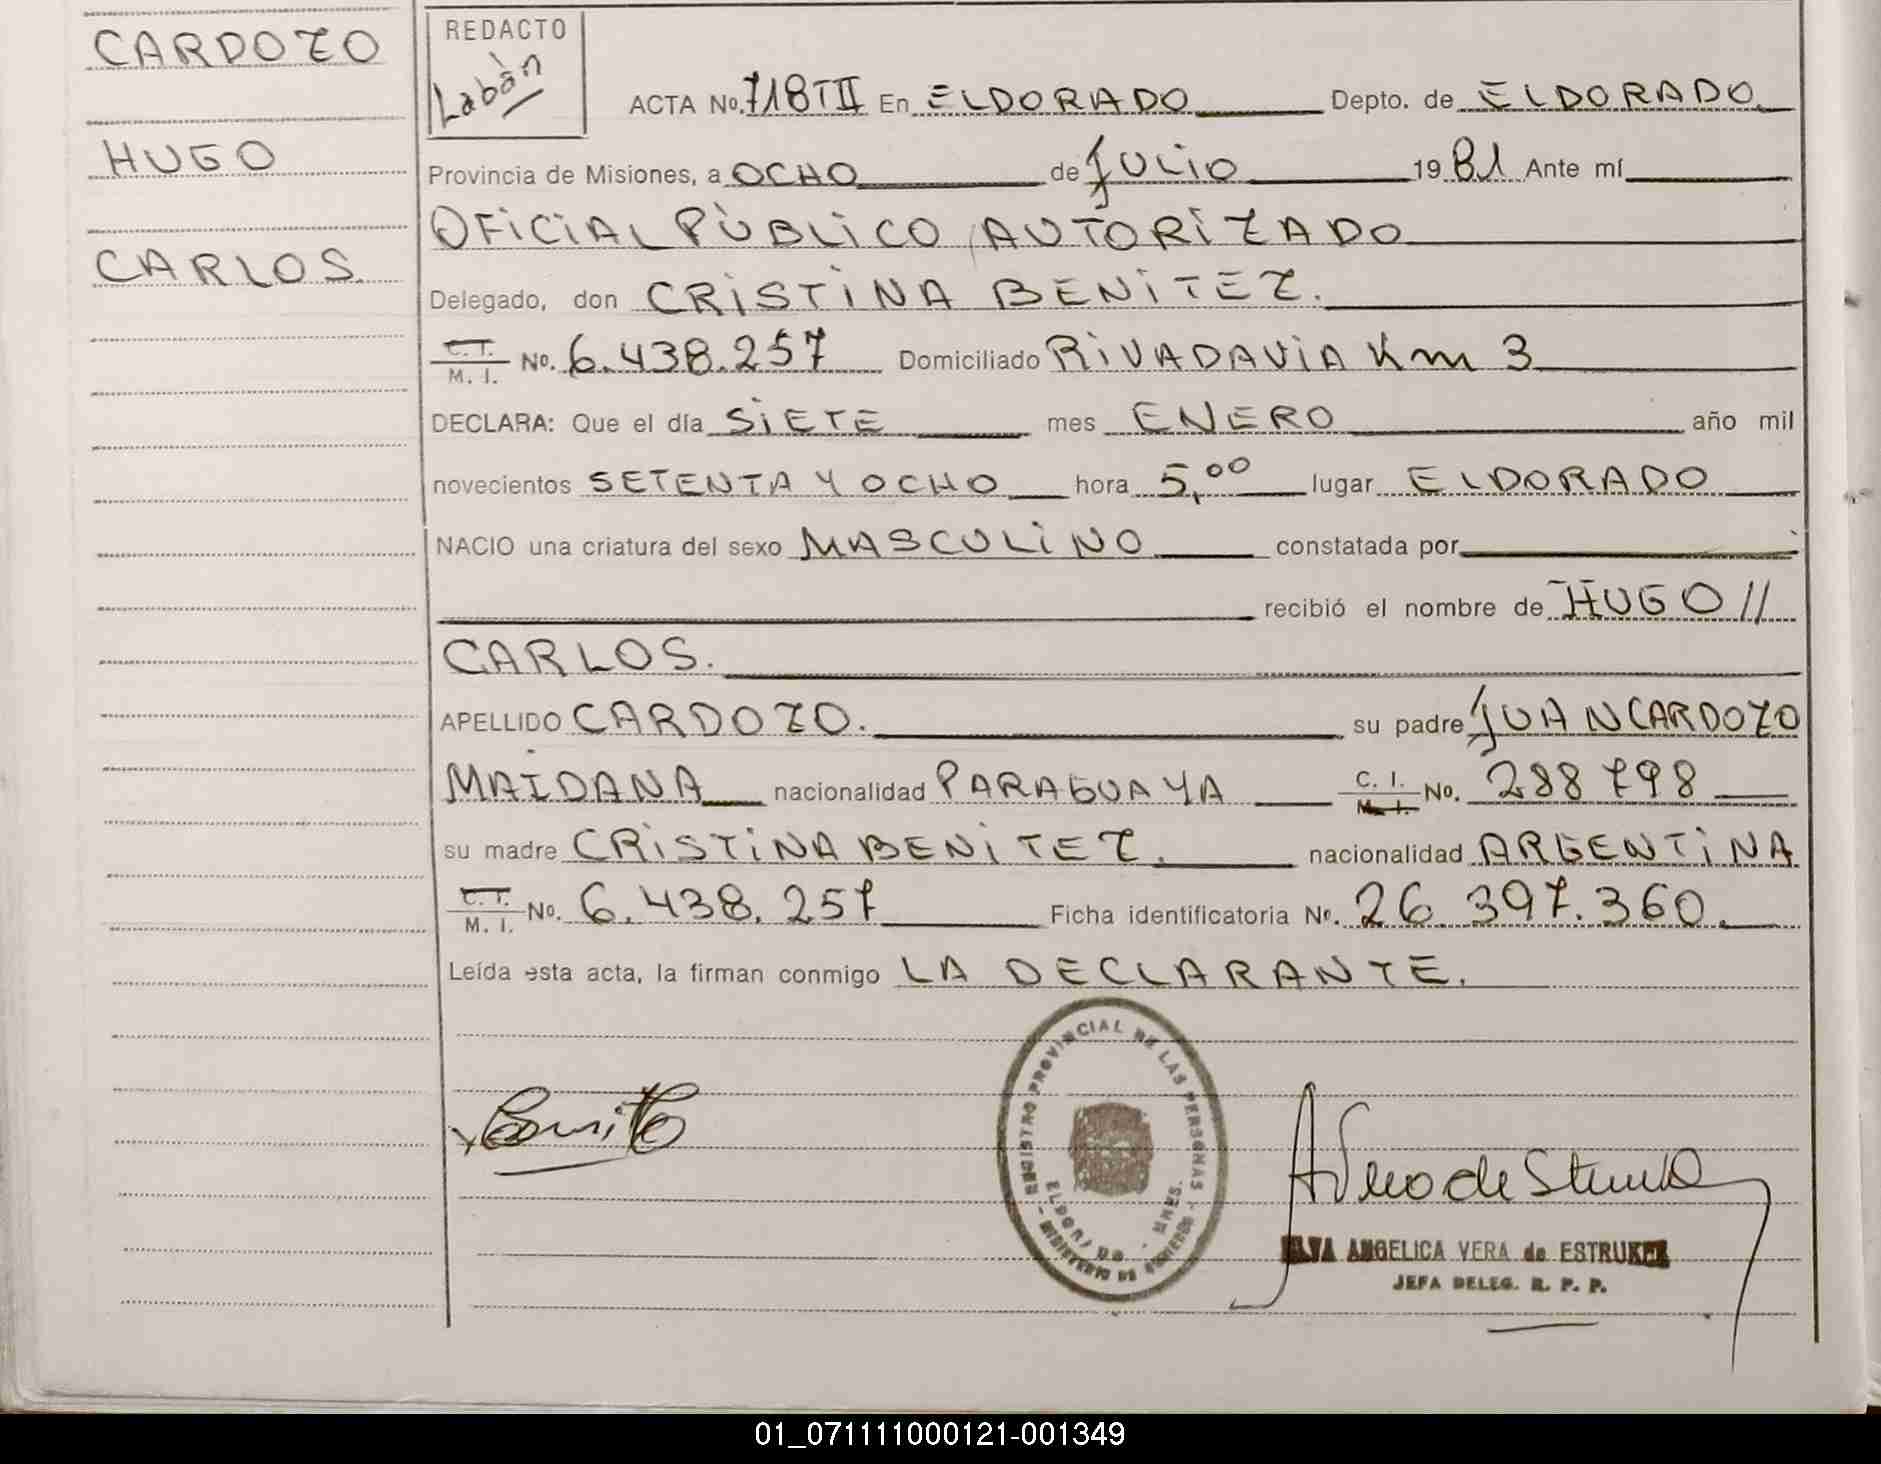 CARDOZO
HUGO
CARLOS.
REDACTO
Labán
ACTA No. 718TII En ELDORADO Depto. de ELDORADO
Provincia de Misiones, a OCHO de JULIO 1981 Ante mí
OFICIAL PÚBLICO AUTORIZADO
Delegado, don CRISTINA BENITEZ.
C. I. M. I. No. 6.438.257 Domiciliado RIVADAVIA Km 3
DECLARA: Que el día SIETE mes ENERO año mil
novecientos SETENTA Y OCHO hora 5,00 lugar ELDORADO
NACIO una criatura del sexo MASCULINO constatada por
recibió el nombre de HUGO //
CARLOS.
APELLIDO CARDOZO. su padre JUAN CARDOZO
MAIDANA nacionalidad PARAGUAYA C. I. M. I. No. 288798
su madre CRISTINA BENITEZ. nacionalidad ARGENTINA
C. I. M. I. No. 6.438.257 Ficha identificatoria No. 26.397.360.
Leída esta acta, la firman conmigo LA DECLARANTE.
REGISTRO PROVINCIAL DE LAS PERSONAS - MINISTERIO DE GOBIERNO -
ELDORADO - MNES.
ANGELICA VERA de ESTRUKEL
JEFA DELEG. R. P. P.
01_071111000121-001349